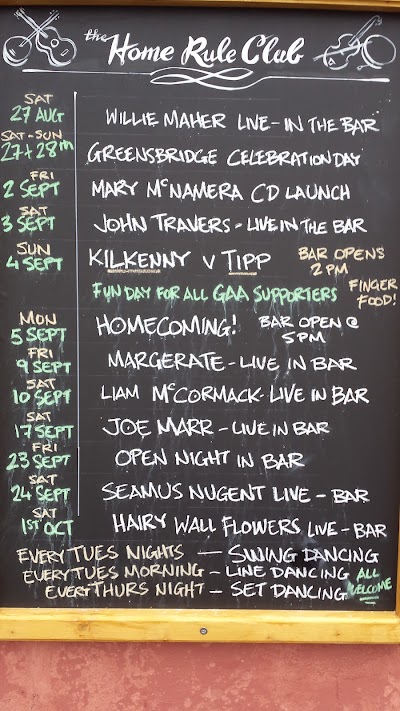 the Home Rule Club
SAT
27 AUG WILLIE MAHER LIVE - IN THE BAR
SAT - SUN
27 + 28th GREENSBRIDGE CELEBRATION DAY
FRI
2 SEPT MARY McNAMERA CD LAUNCH
SAT
3 SEPT JOHN TRAVERS - LIVE IN THE BAR
SUN
4 SEPT KILKENNY V TIPP BAR OPENS 2 PM
FUN DAY FOR ALL GAA SUPPORTERS FINGER FOOD!
MON
5 SEPT HOMECOMING! BAR OPEN @ 5PM
FRI
9 SEPT MARGERATE - LIVE IN BAR
SAT
10 SEPT LIAM McCORMACK - LIVE IN BAR
SAT
17 SEPT JOE MARR - LIVE IN BAR
FRI
23 SEPT OPEN NIGHT IN BAR
SAT
24 SEPT SEAMUS NUGENT LIVE - BAR
SAT
1ST OCT HAIRY WALL FLOWERS LIVE - BAR
EVERY TUES NIGHTS — SWING DANCING
EVERY TUES MORNING - LINE DANCING ALL WELCOME
EVERY THURS NIGHT - SET DANCING